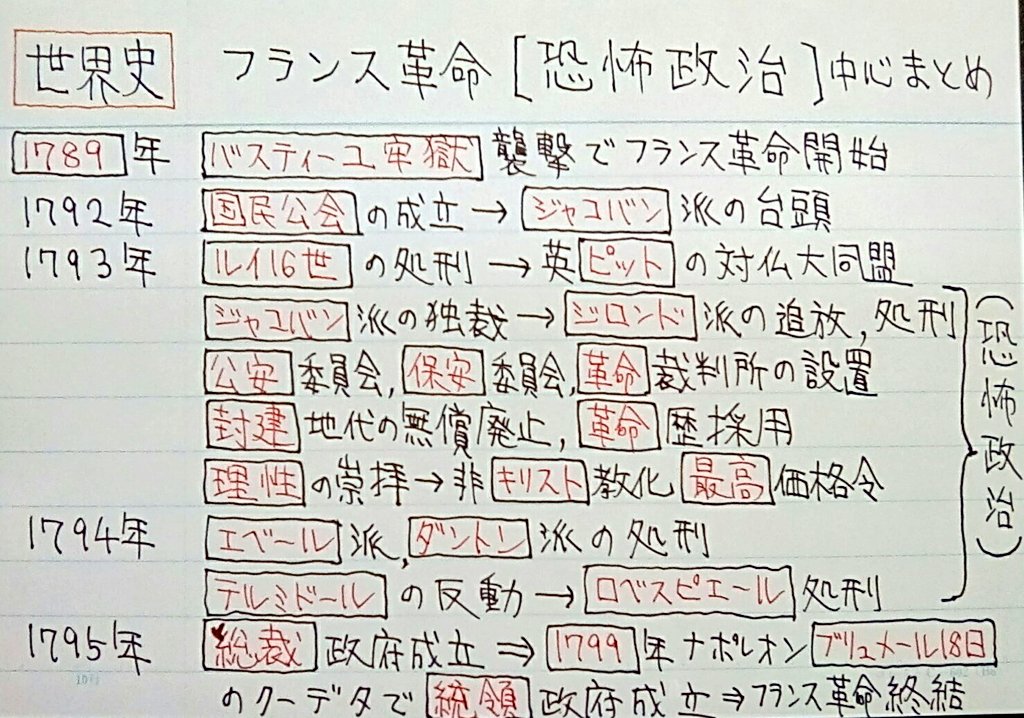 世界史 フランス革命 [恐怖政治] 中心まとめ
1789年 バスティーユ牢獄 襲撃でフランス革命開始
1792年 国民公会の成立→ジャコバン派の台頭
1793年 ルイ16世の処刑→英ピットの対仏大同盟
ジャコバン派の独裁→ジロンド派の追放,処刑
公安委員会,保安委員会,革命裁判所の設置
封建地代の無償廃止,革命歴採用
理性の崇拝→非キリスト教化 最高価格令
(恐怖政治)
1794年 エベール派,ダントン派の処刑
テルミドールの反動→ロベスピエール処刑
1795年 総裁政府成立⇒1799年ナポレオンブリュメール18日
のクーデタで統領政府成立⇒フランス革命終結